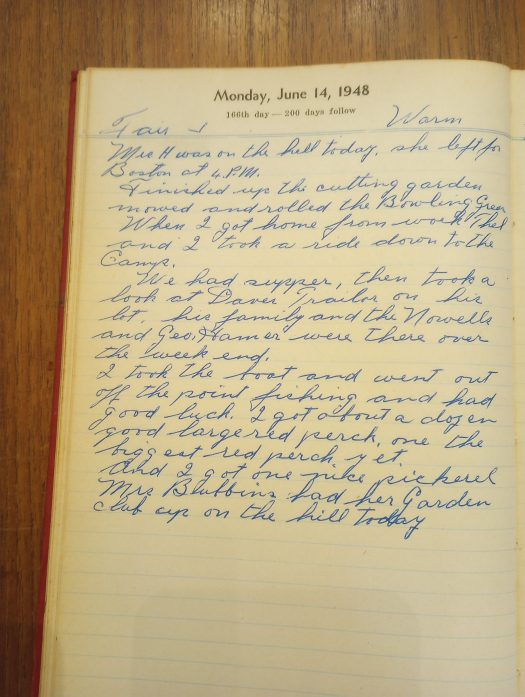 Monday, June 14, 1948
166th day — 200 days follow
Fair & Warm
Mrs H was on the hill today. she left for
Boston at 4 P.M.
Finished up the cutting garden
mowed and rolled the Bowling Green
When I got home from work Thel
and I took a ride down to the
Camp.
We had supper, then took a
look at Daves Trailor on his
lot, his family and the Nowells
and Geo. Hamer were there over
the week end.
I took the boat and went out
off the point fishing and had
good luck. I got about a dozen
good large red perch, one the
biggest red perch yet.
and I got one nice pickerel
Mrs had her Garden
club up on the hill today